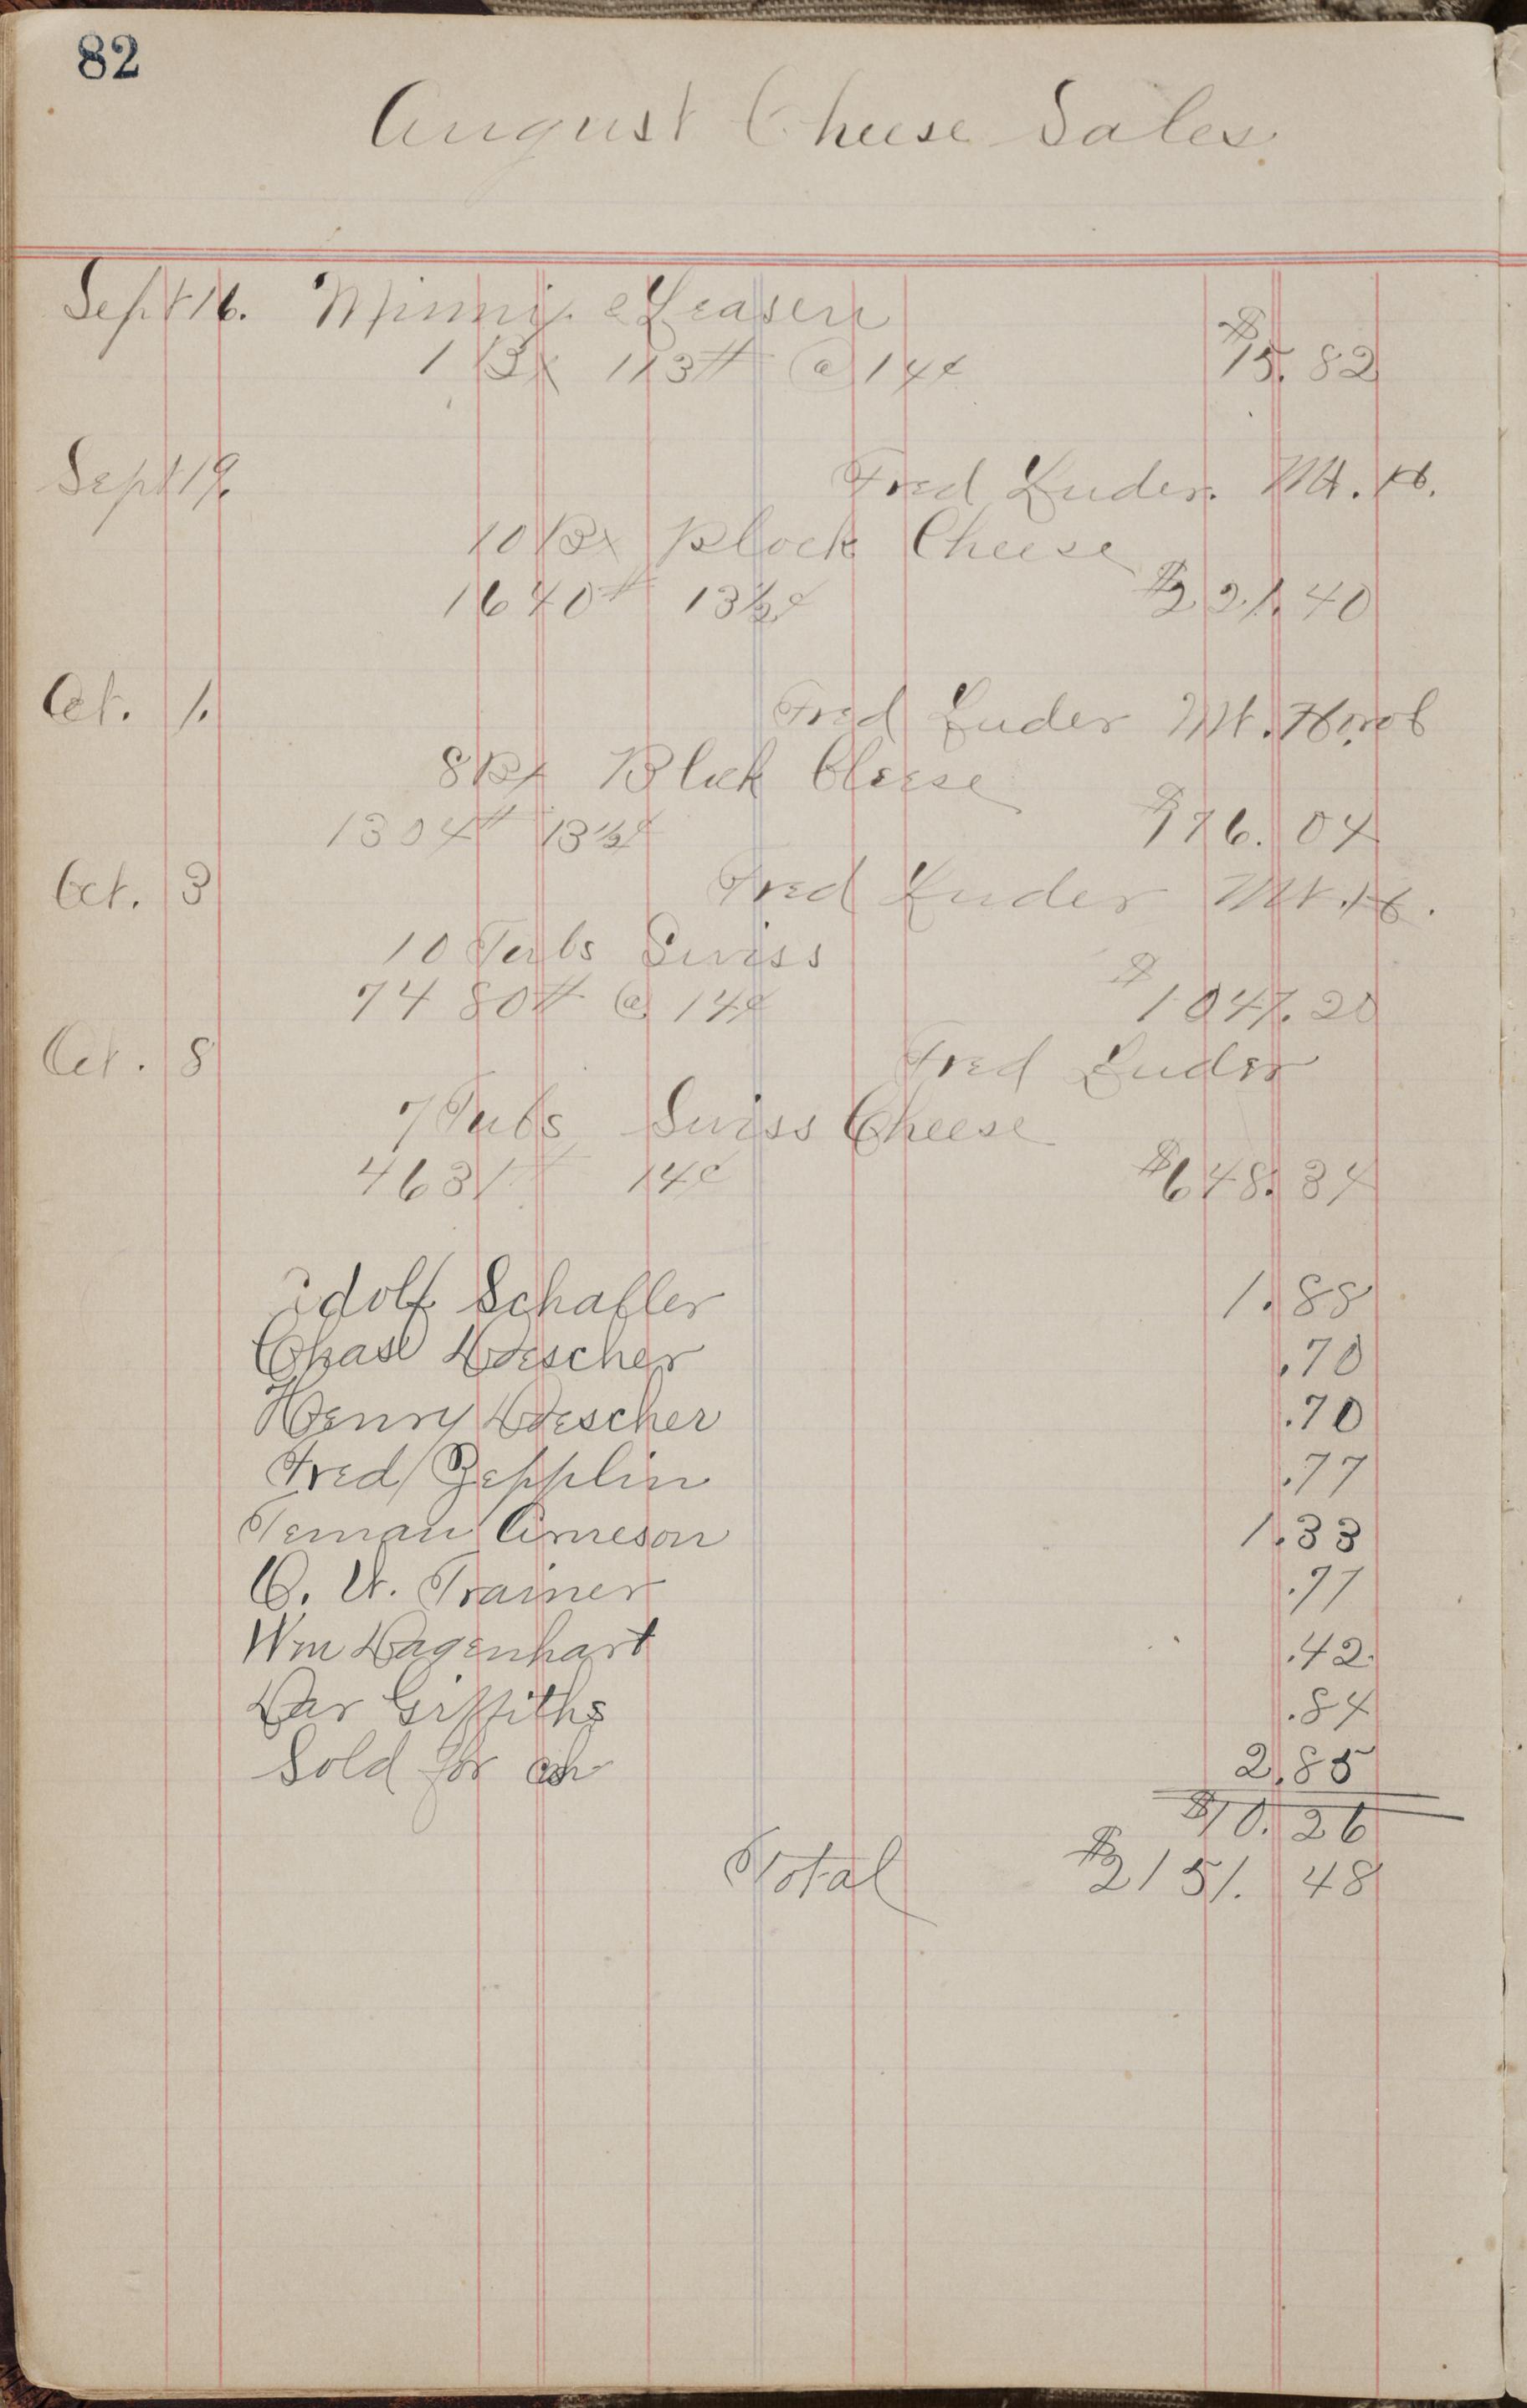 82
August Cheese Sales
Sept 16. &
1 Bx 113# @ 14¢ $15.82
Sept 19. Fred Luder. Mt. H.
10 Bx Block Cheese
1640# 13½¢ $221.40
Oct. 1. Fred Luder Mt. Horob
8 Bx Block Cheese
1304# 13½¢ $176.04
Oct. 3 Fred Luder Mt. H.
10 Tubs Swiss
7480# @ 14¢ $1047.20
Oct. 8 Fred Luder
7 Tubs Swiss Cheese
4631# 14¢ $648.34
Adolf Schafler 1.88
Chase Doescher .70
Henry Doescher .70
Fred Zepplin .77
Teman Arneson 1.33
Trainer .77
Wm Dagenhart .42
Dav Griffiths .84
Sold for 2.85
$10.26
Total $2151.48